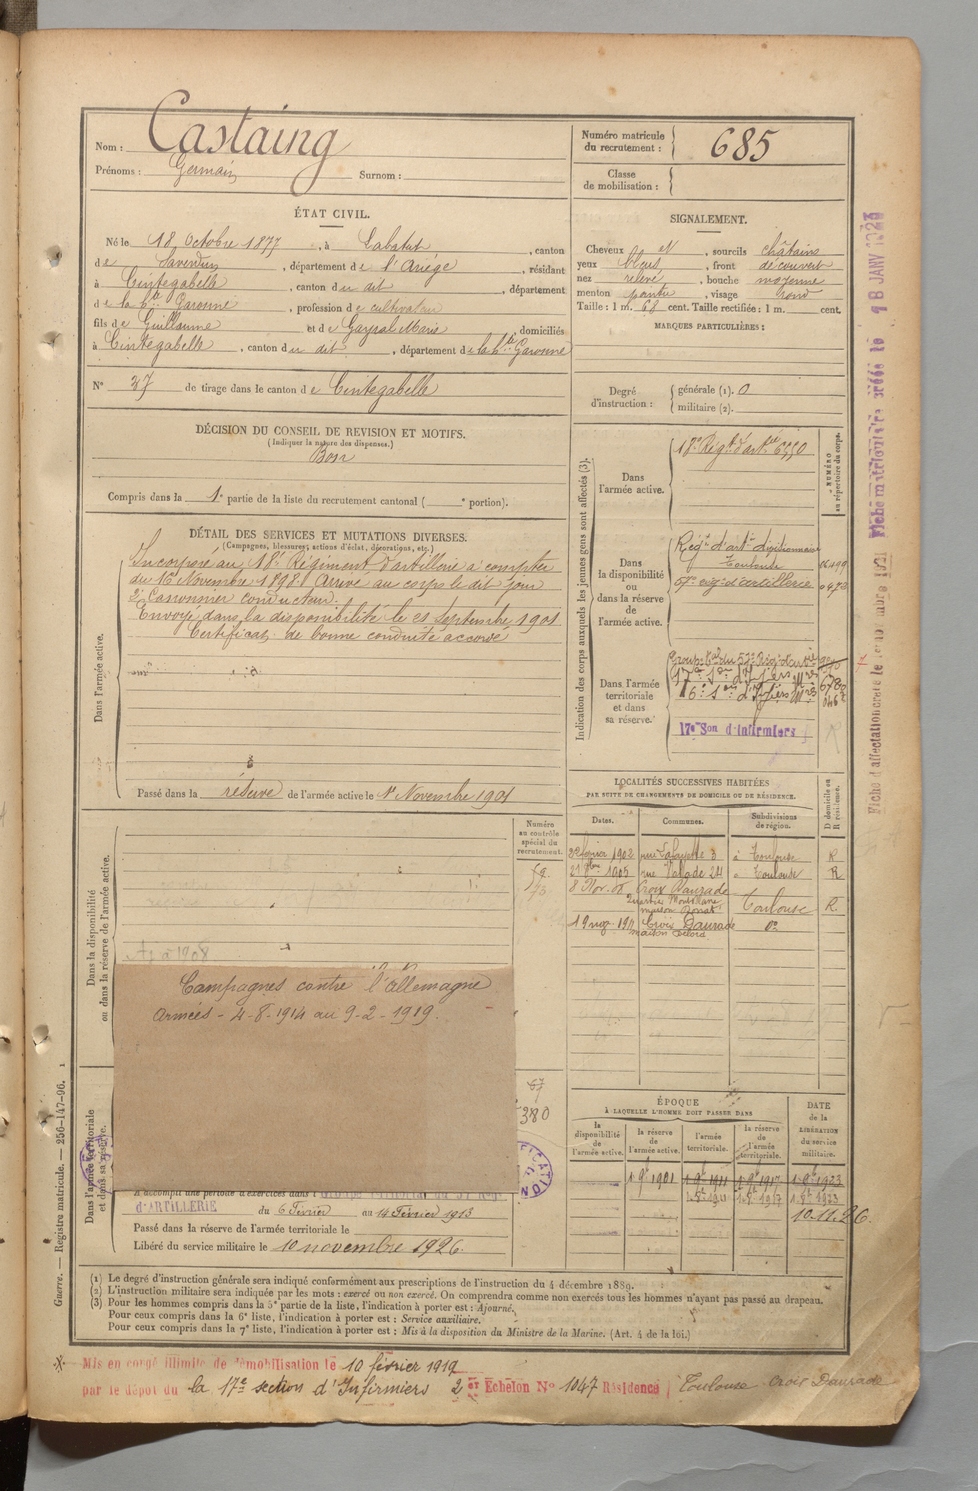 Nom : Castaing
Prénoms : Germain Surnom :
Numéro matricule du recrutement : 685
Classe de mobilisation :
ÉTAT CIVIL.
Né le 18 Octobre 1877, à Labatut, canton
de Saverdun, département de l'Ariège, résidant
à Cintegabelle, canton du dit, département
de la hte Garonne, profession de cultivateur
fils de Guillaume et de Gayral Marie, domiciliés
à Cintegabelle, canton du dit, département de la hte Garonne
N° 37 de tirage dans le canton de Cintegabelle
SIGNALEMENT.
Cheveux et, sourcils châtains
yeux bleus, front découvert
nez relevé, bouche moyenne
menton pointu, visage rond
Taille : 1 m. 68 cent. Taille rectifiée : 1 m. cent.
MARQUES PARTICULIÈRES :
Degré d'instruction : générale (1). 0
militaire (2).
DÉCISION DU CONSEIL DE REVISION ET MOTIFS.
(Indiquer la nature des dispenses.)
Bon
Compris dans la 1e partie de la liste du recrutement cantonal ( e portion).
DÉTAIL DES SERVICES ET MUTATIONS DIVERSES.
(Campagnes, blessures, actions d'éclat, décorations, etc.)
Dans l'armée active.
Incorporé au 18e Régiment d'artillerie à compter
du 16 Novembre 1898. Arrivé au corps le dit jour
2e Canonnier conducteur.
Envoyé dans la disponibilité le 21 septembre 1901
Certificat de bonne conduite accordé
Passé dans la réserve de l'armée active le 1er Novembre 1901
Indication des corps auxquels les jeunes gens sont affectés (3).
NUMÉRO au répertoire du corps.
Dans l'armée active.
18e Régt d'artie 6550
Dans la disponibilité ou dans la réserve de l'armée active.
Régt d'artie divisionnaire
Toulouse
d'artillerie
Dans l'armée territoriale et dans sa réserve.
17e Son d'Infirmiers
LOCALITÉS SUCCESSIVES HABITÉES
PAR SUITE DE CHANGEMENTS DE DOMICILE OU DE RÉSIDENCE.
Dates. Communes. Subdivisions de région. D domicile ou R résidence.
février 1902 rue Lafayette 3 à Toulouse R
1905 rue Valade 24 à Toulouse R
8 Nov. Croix Daurade
Toulouse R
1911 Croix Daurade do
maison Delord
Dans la disponibilité ou dans la réserve de l'armée active.
Numéro au contrôle spécial du recrutement.
Campagnes contre l'Allemagne
Armées - 4-8-1914 au 9-2-1919.
380
Dans l'armée territoriale et dans sa réserve.
A accompli une période d'exercices dans l
d'ARTILLERIE
du 6 Février au 14 Février 1913
Passé dans la réserve de l'armée territoriale le
Libéré du service militaire le 10 novembre 1926.
ÉPOQUE
A LAQUELLE L'HOMME DOIT PASSER DANS
la disponibilité de l'armée active.
la réserve de l'armée active.
l'armée territoriale.
la réserve de l'armée territoriale.
DATE de la LIBÉRATION du service militaire.
1 9bre 1901 1 9bre 1911 1 9bre 1917 1 9bre 1923
10.11.26.
(1) Le degré d'instruction générale sera indiqué conformément aux prescriptions de l'instruction du 4 décembre 1889.
(2) L'instruction militaire sera indiquée par les mots : exercé ou non exercé. On comprendra comme non exercés tous les hommes n'ayant pas passé au drapeau.
(3) Pour les hommes compris dans la 5e partie de la liste, l'indication à porter est : Ajourné.
Pour ceux compris dans la 6e liste, l'indication à porter est : Service auxiliaire.
Pour ceux compris dans la 7e liste, l'indication à porter est : Mis à la disposition du Ministre de la Marine. (Art. 4 de la loi.)
Mis en congé illimité de démobilisation le 10 février 1919
par le dépôt du la 17e section d'Infirmiers 2 er Echelon N° 1047 Résidence Toulouse Croix Daurade
Guerre. — Registre matricule. — 256-147-96.